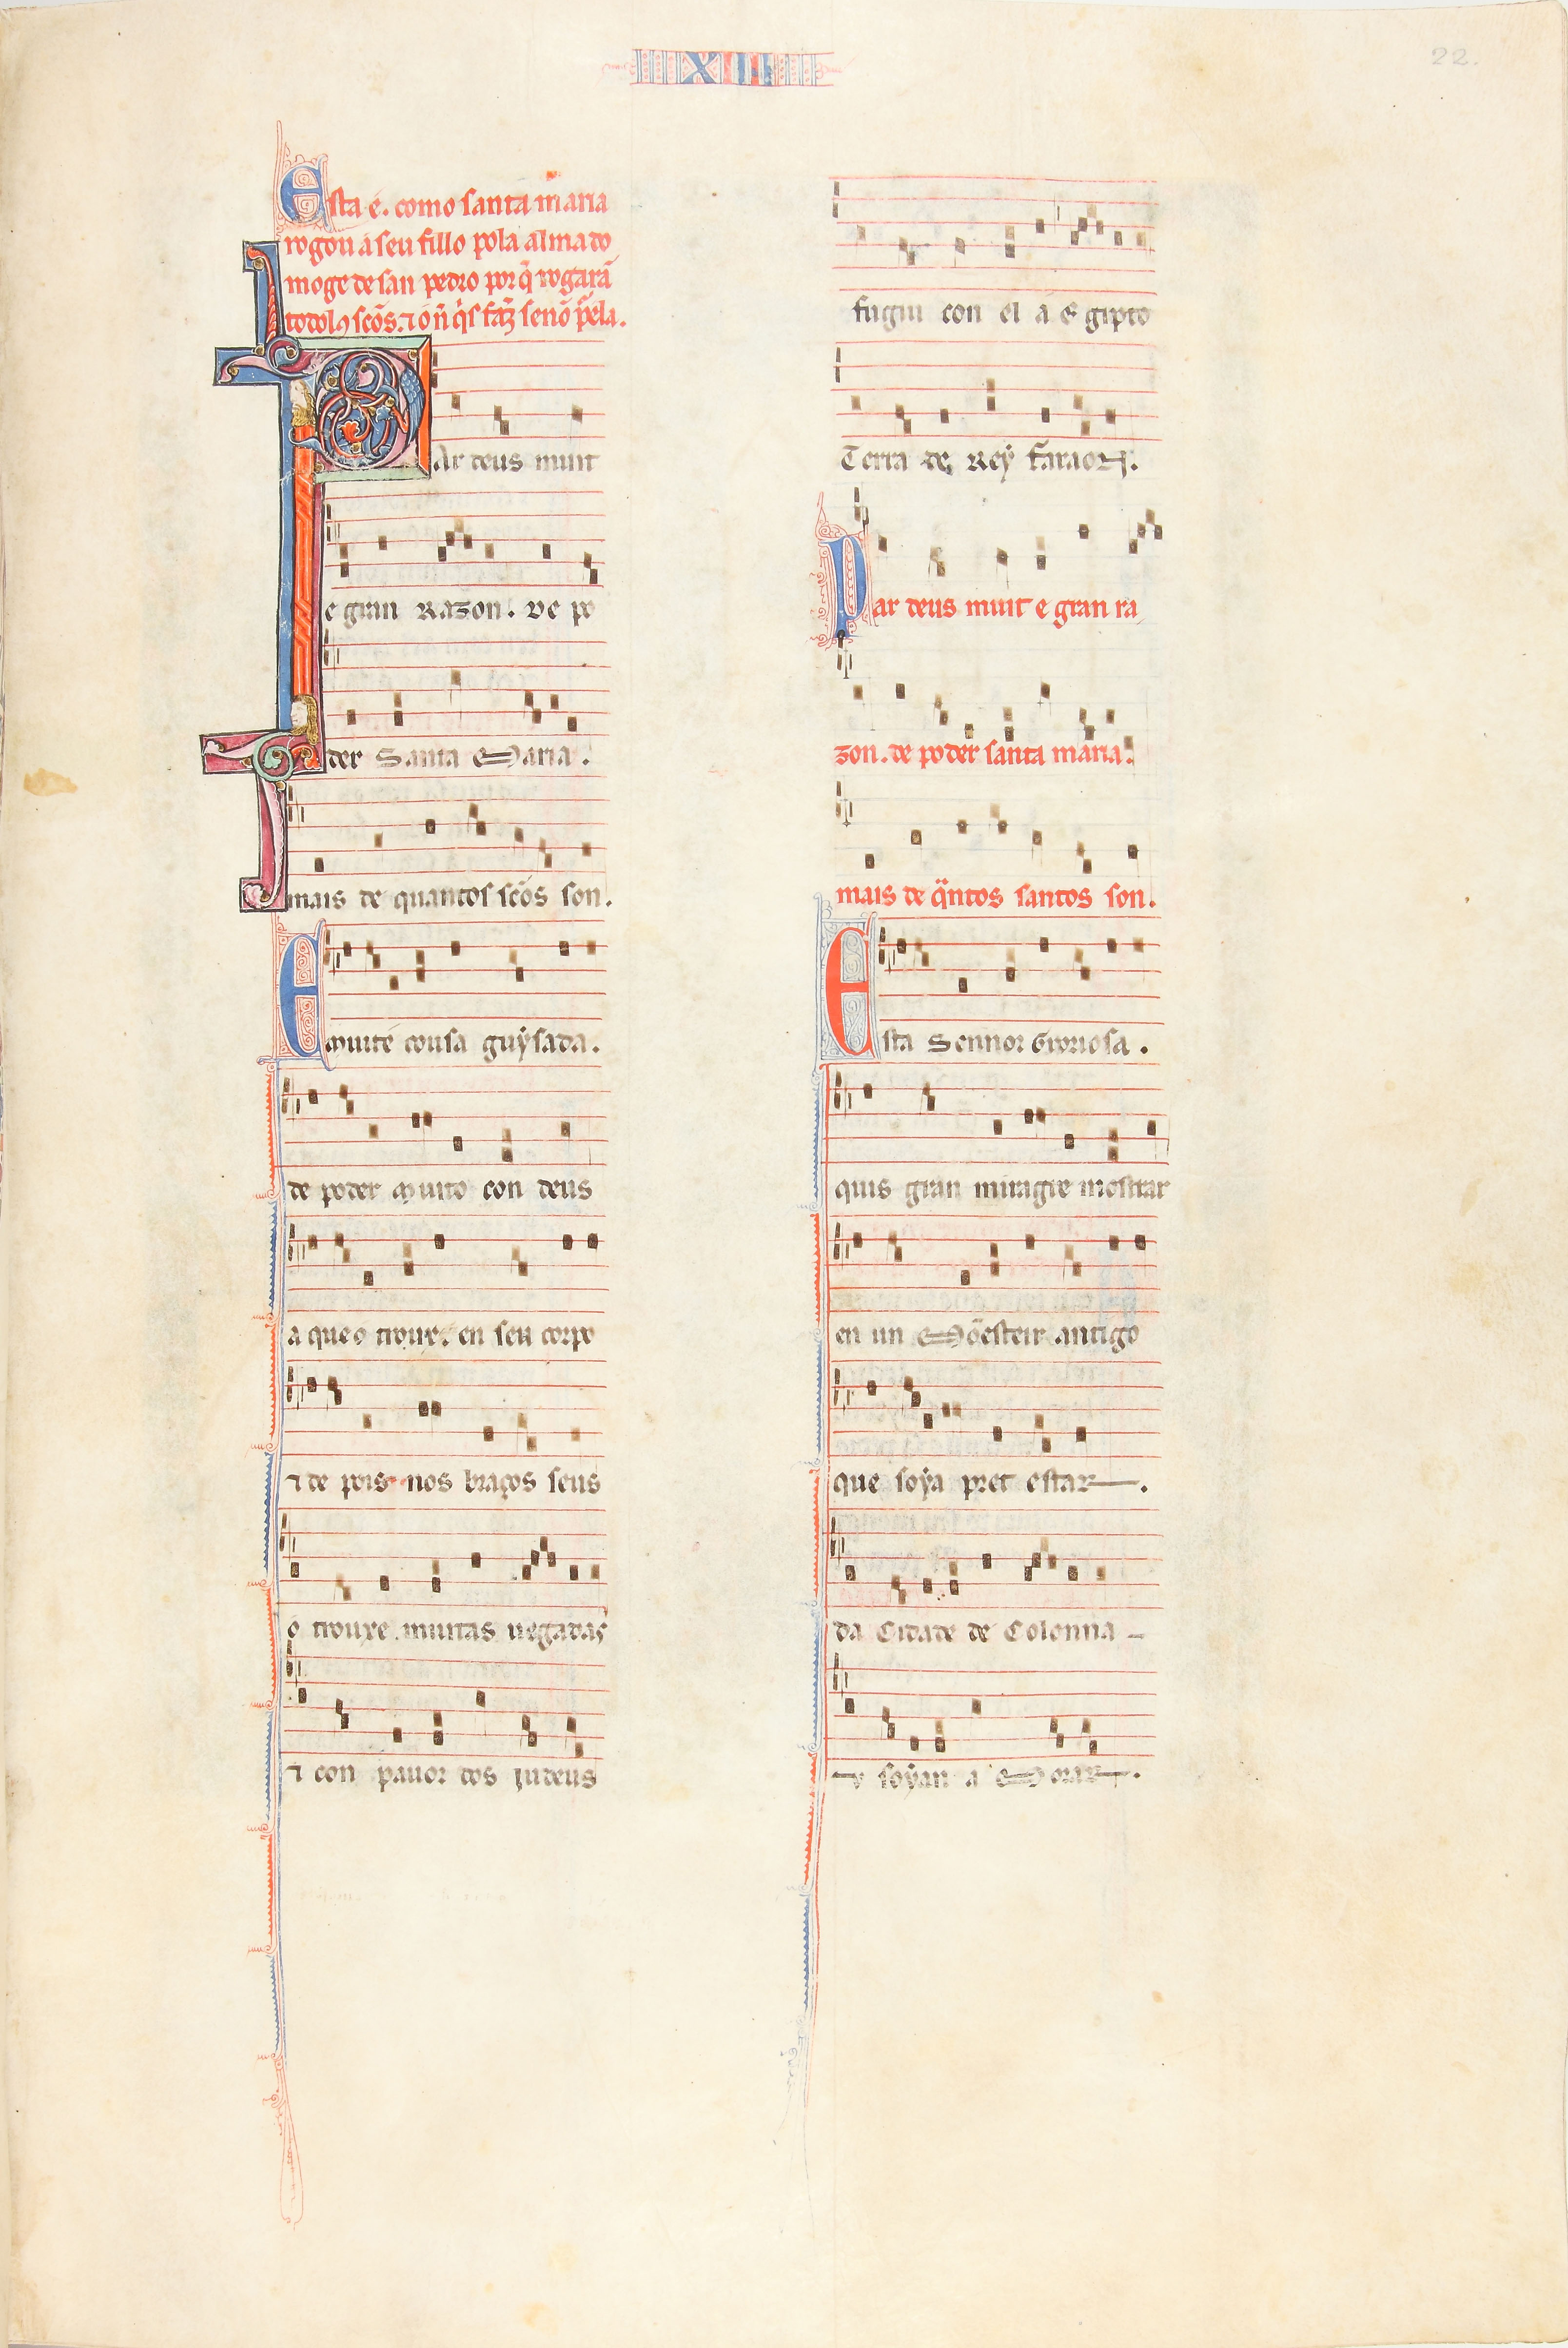 XIIII
22.
Esta é. como santa maria
rogou a seu fillo pola alma do
moge de san pedro por q̃ rogarã
todolꝯ scõs. ⁊ o nõ q̇s faz̃ senõ p̃ ela.
PAr deus muit
e gran Razon. De po
der Santa Maria.
mais de quantos scõs son.
E Muite cousa guẏsada.
de poder Muito con deus
a que o trouxe en seu corpo
⁊ de pois nos braços seus
o trouxe muitas uegadas
⁊ con pauor dos judeus
fugiu con el a Egipto
Terra de Reẏ faraon.
Par deus muit e gran ra
zon. de poder santa maria.
mais de q̃ntos santos son.
Esta Sennor Groriosa.
quis gran miragre mostrar
en un Mõesteir antigo
que soẏa pret estar.
da Cidade de Colonna
u soẏan a Morar.